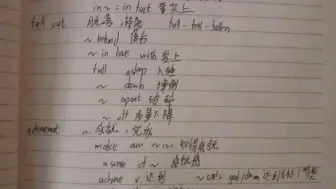 in~ = in fact 事实上
fall out 脱离，掉落 fall - fell - fallen
~ behind 落后
~ in love with 爱上
fall asleep 入睡
~ down 摔倒
~ apart 破碎
~ off 质量下降
achievement n. 成就，完成
make an ~ 取得成就
a sense of ~ 成就感
achieve v. 达到 ~ one's goal/dream 达到目标